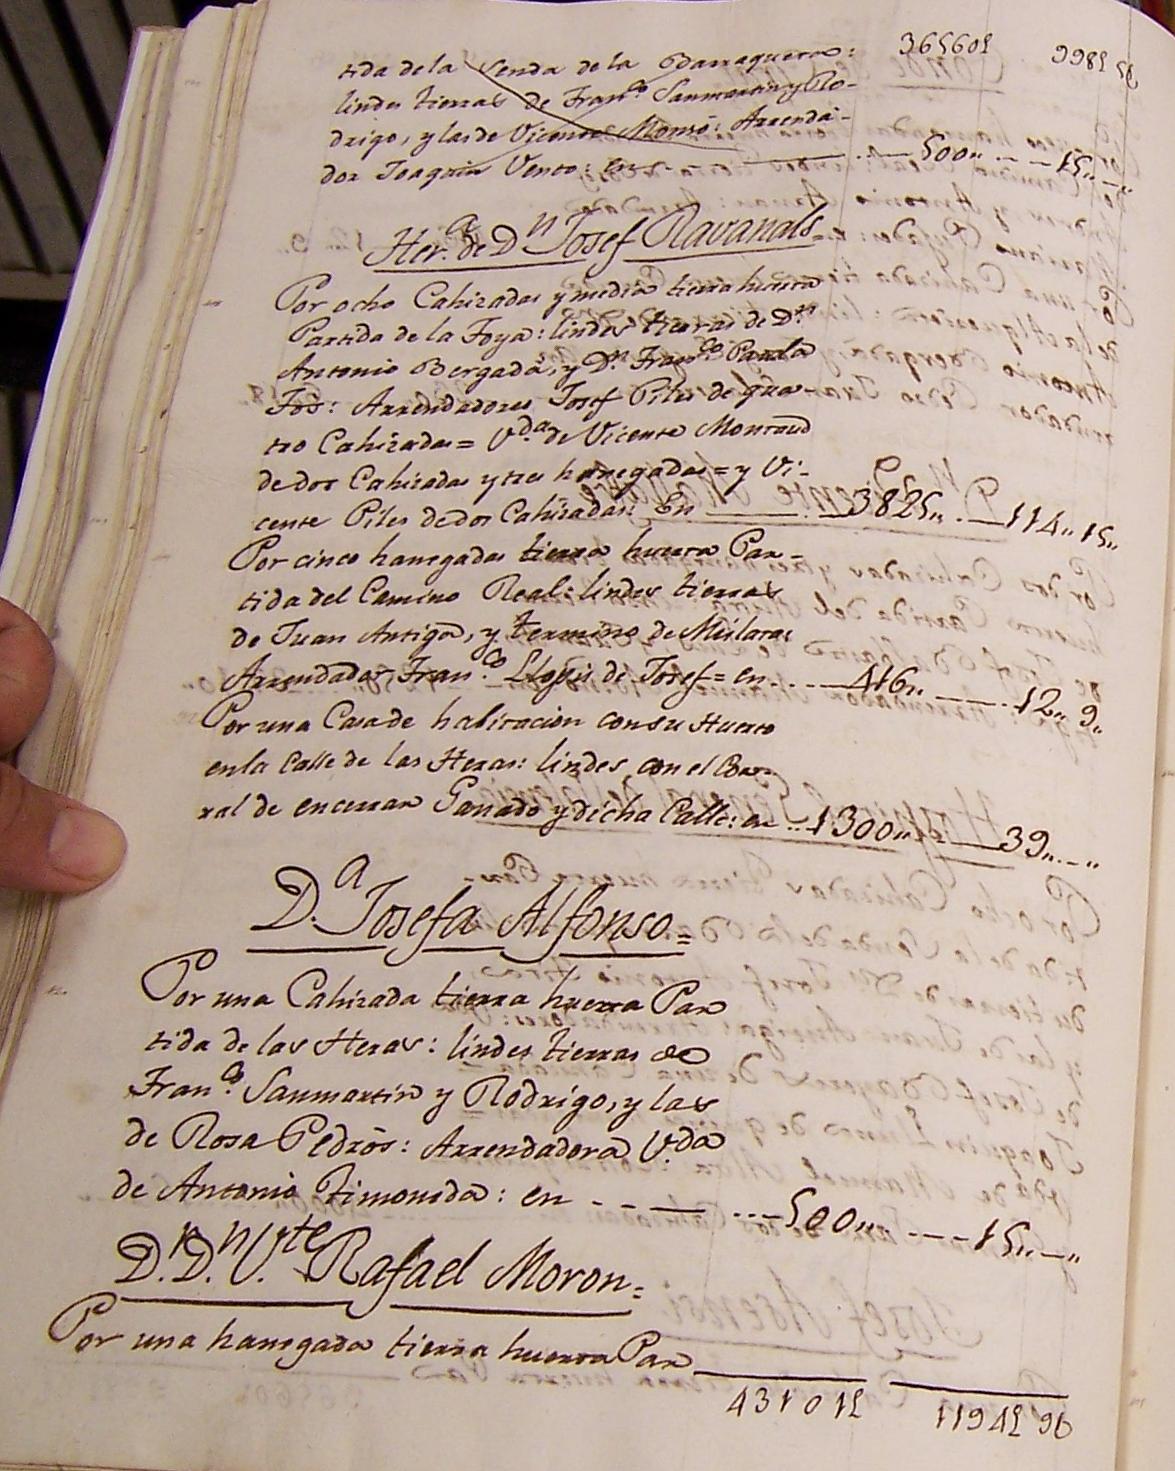 36560£ 998£ 5
tida de la Senda de la Barraquera:
lindes tierras de Fran.co Sanmartin y Ro-
drigo, y las de Vicente Monsó: Arrenda-
dor Joaquin Vento: en 500,, 15,,
Her.s de Dn Josef Ravanals=
Por ocho Cahizadas y media tierra huerta
Partida de la Foya: lindes tierras de Dn
Antonio Bergadà, y Dn Fran.co Paula
Fos: Arrendadores Josef Piles de qua-
tro Cahizadas= V.da de Vicente Montaud
de dos Cahizadas y tres hanegadas= y Vi-
cente Piles de dos Cahizadas: En 3825,, 114,, 15,,
Por cinco hanegadas tierra huerta Par-
tida del Camino Real: lindes tierras
de Juan Antigo, y termino de Mislata:
Arrendador Fran.co Llopis de Josef= en 416,, 12,, 9,,
Por una Casa de habitacion con su Huerto
en la Calle de las Heras: lindes con el Cor-
ral de encerrar Ganado y dicha Calle: en 1300,, 39,, ,,
D.a Josefa Alfonso=
Por una Cahizada tierra huerta Par
tida de las Heras: lindes tierras de
Fran.co Sanmartin y Rodrigo, y las
de Rosa Pedrós: Arrendadora V.da
de Antonio Timoneda: en 500,, 15,, ,,
D.n D.n V.te Rafael Moron=
Por una hanegada tierra huerta Par
43101£ 1194£ 96